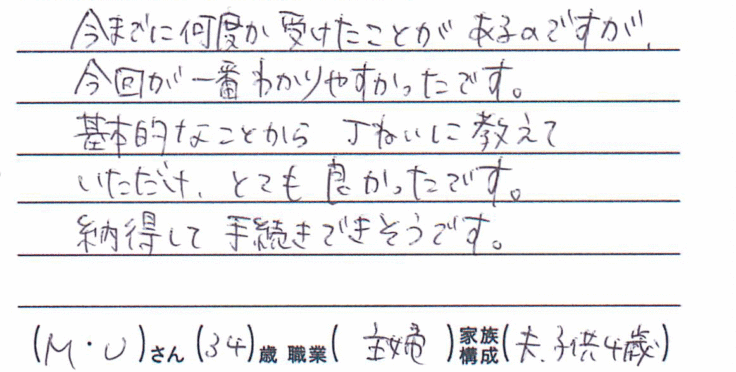 今までに何度か受けたことがあるのですが、
今回が一番わかりやすかったです。
基本的なことから丁ねいに教えて
いただけ、とても良かったです。
納得して手続きできそうです。
(M・U)さん(34)歳 職業(主婦)家族構成(夫、子供4歳)